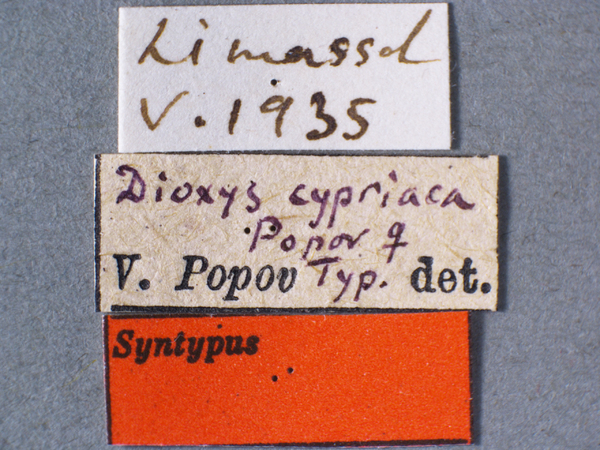 Limassol
V. 1935
Dioxys cypriaca
Popov ♀
V. Popov Typ. det.
Syntypus